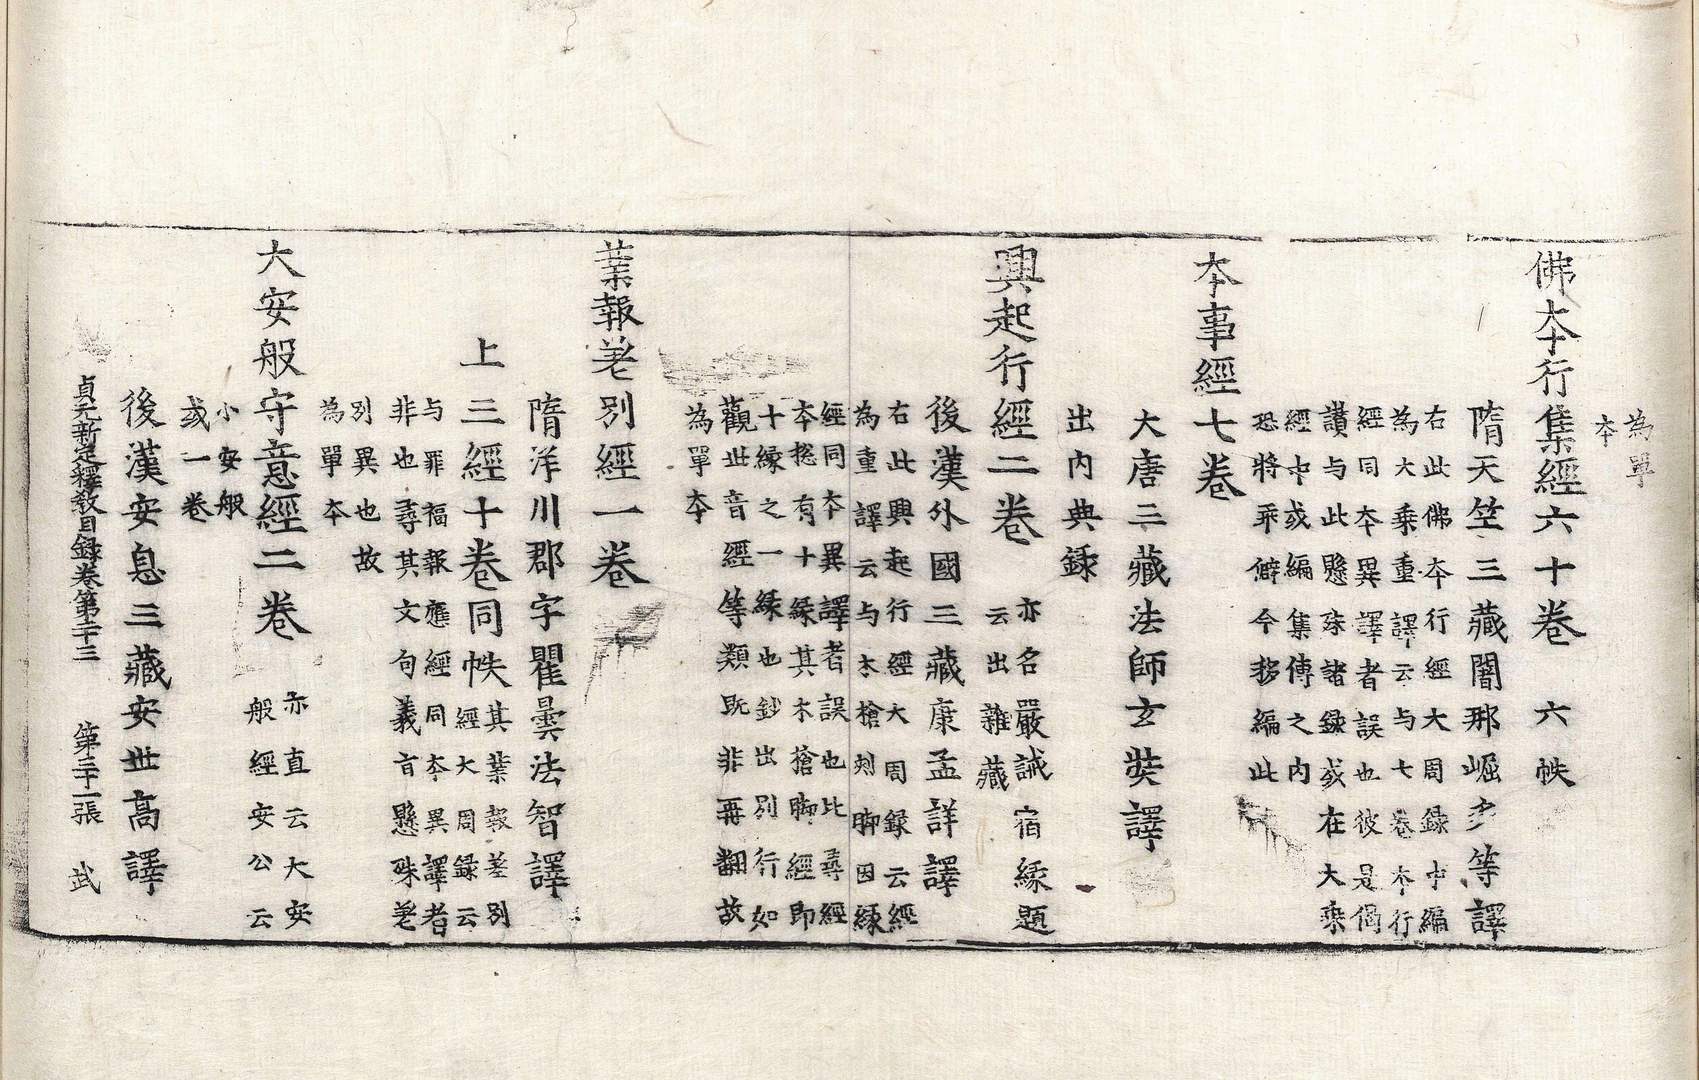 為單
本
佛本行集經六十卷　六帙
隋天竺三藏闍那崛多等譯
右此佛本行經大周録中編
為大乗重譯云与七卷本行
經同本異譯者誤也彼是偈
讃与此懸殊諸録或在大乗
經中或編集傳之内
恐將乖僻今移編此
本事經七卷
大唐三藏法師玄奘譯
出内典録
興起行經二卷
亦名嚴誡宿緣題
云出雜藏
後漢外國三藏康孟詳譯
右此興起行經大周録云經
為重譯云与木槍刾脚因緣
經同本異譯者誤也比尋經
本揔有十緣其木槍脚經即
十緣之一緣也鈔出別行如
觀世音經等類既非再翻故
為單本
業報差別經一卷
隋洋川郡字瞿曇法智譯
上三經十卷同帙
其業報差別
經大周録云
与罪福報應經同本異譯者
非也尋其文句義旨懸殊差
別異也故
為單本
大安般守意經二卷
亦直云大安
般經安公云
小安般
或一卷
後漢安息三藏安世高譯
貞元新定釋教目録卷第二十三　第三十一張　武